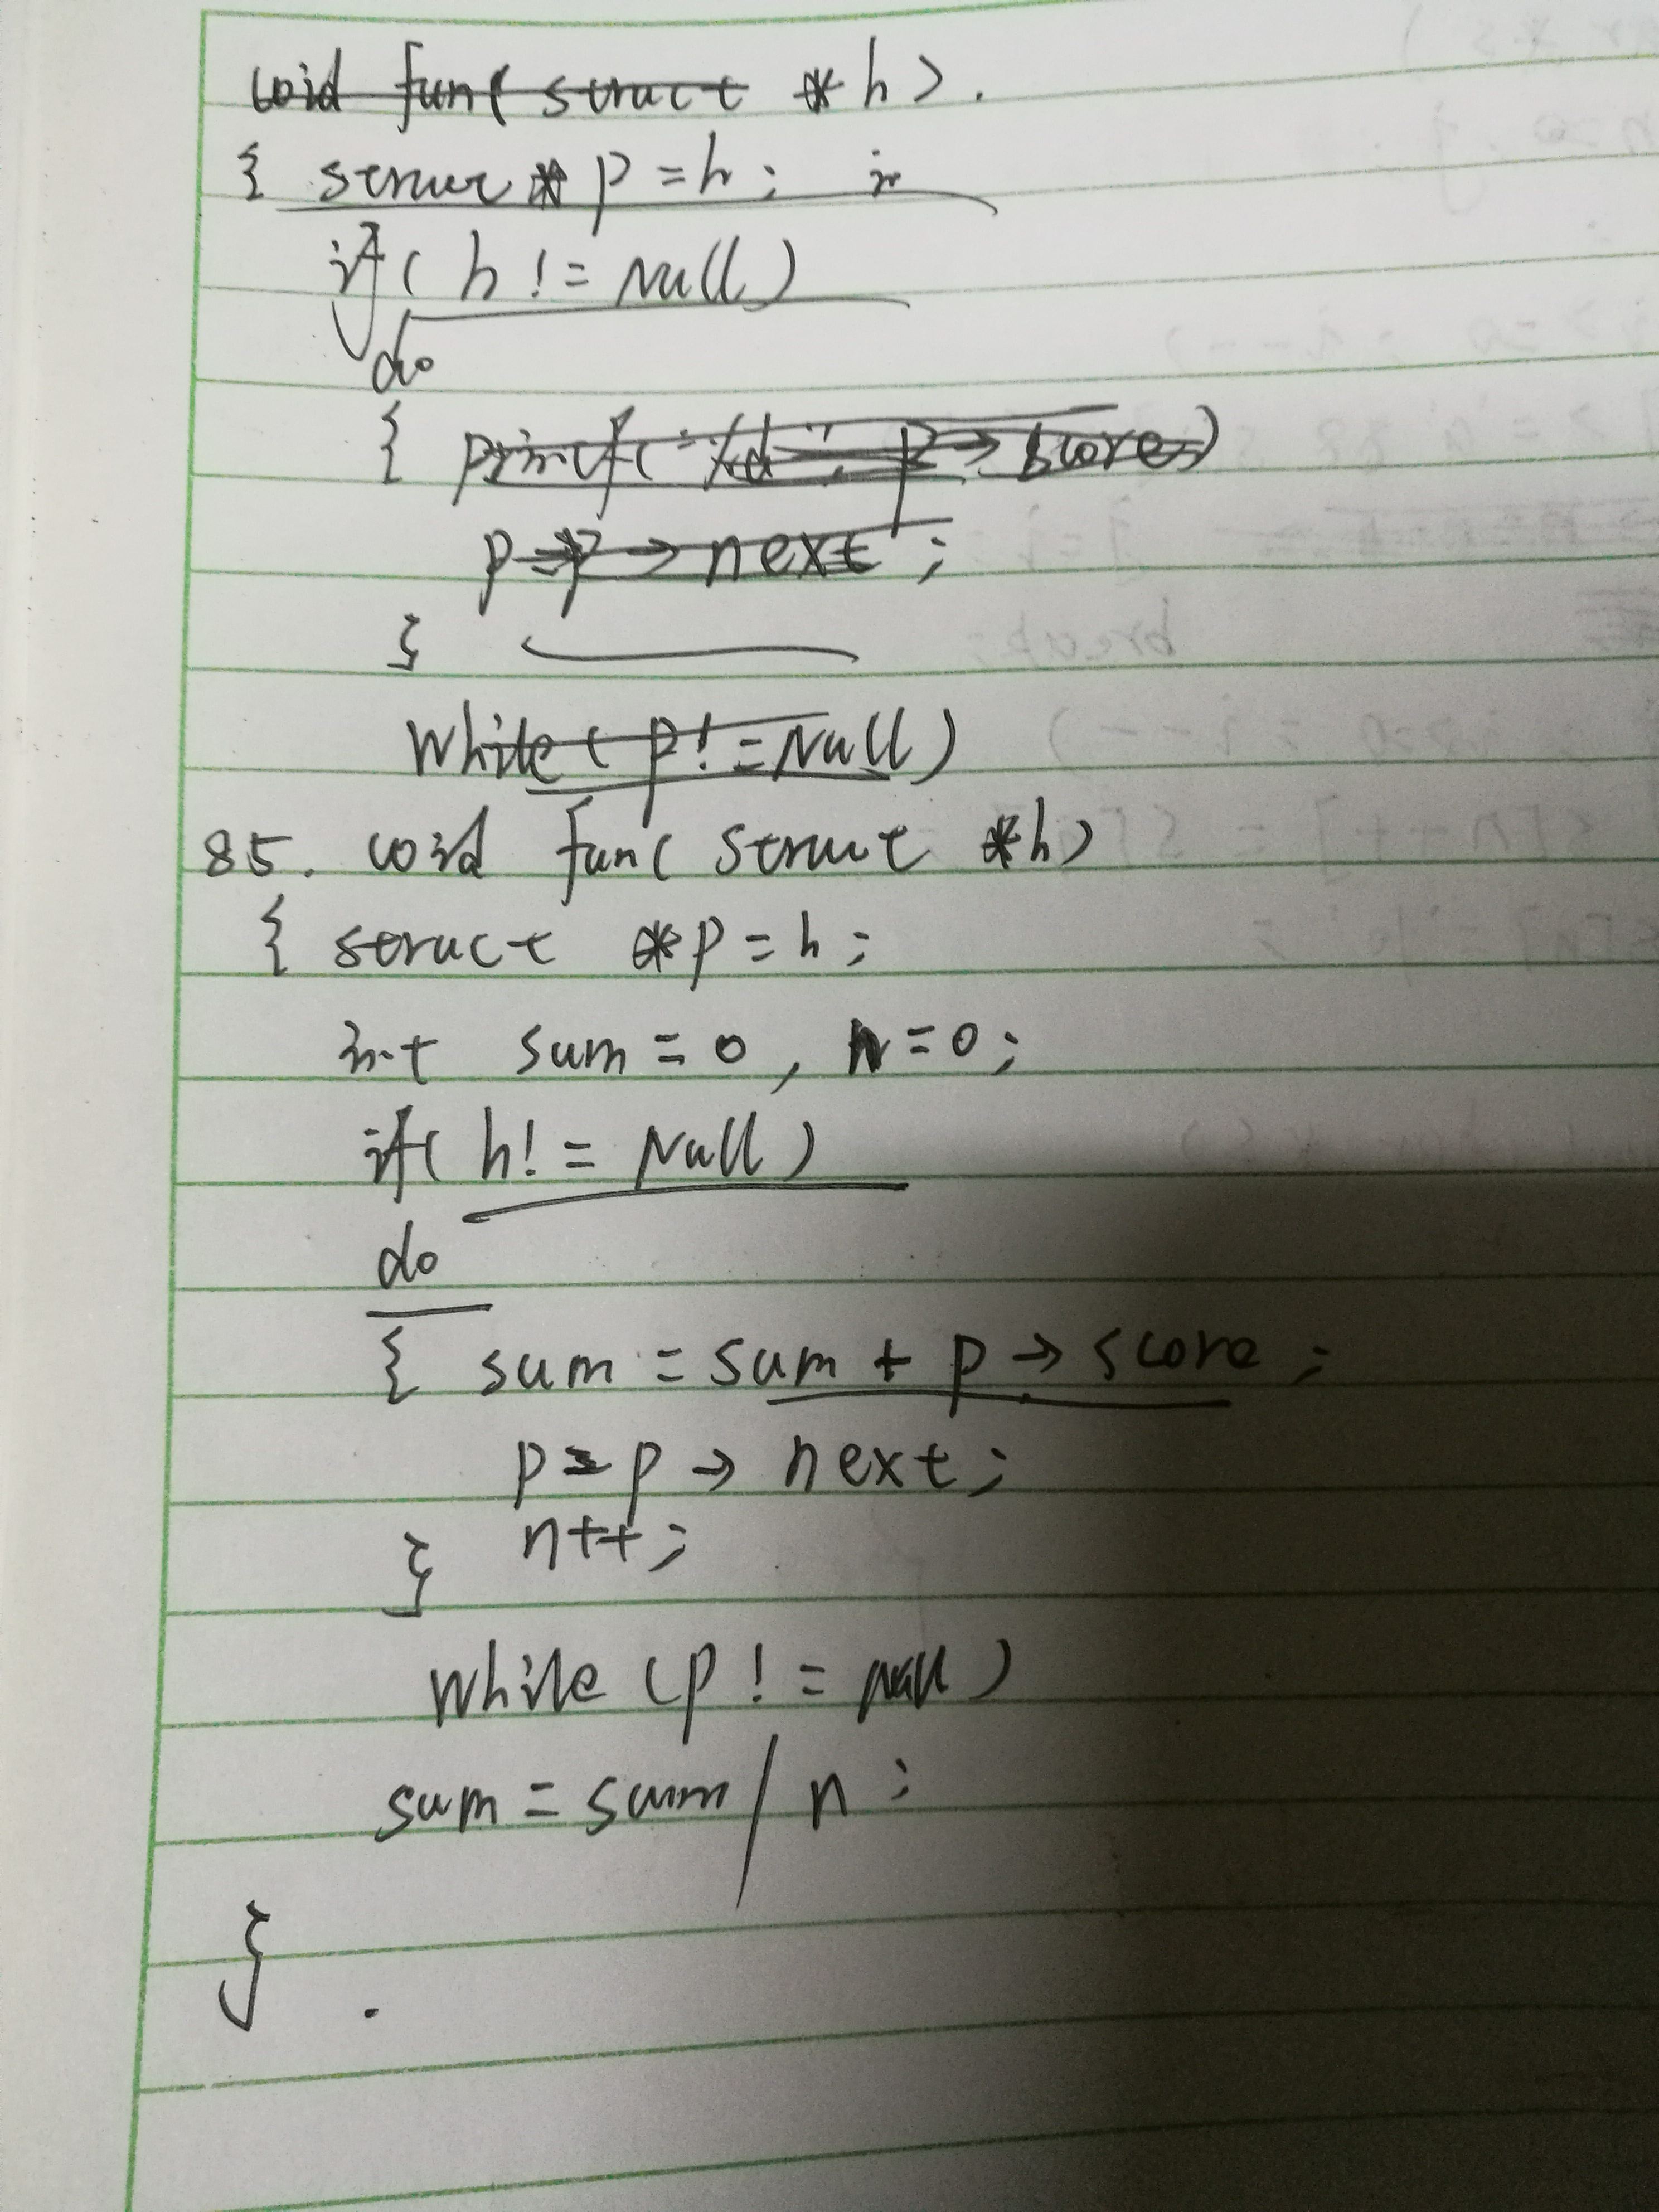 void fun( struct *h).
{ struct * p = h; in
if( h != Null)
do
{ printf( "%d", p→score)
p=p→next ;
}
while( p!=Null)
85. void fun( struct *h)
{ struct *p = h;
int sum = 0, n=0;
if( h! = Null)
do
{ sum = sum + p→score;
p=p→next;
n++;
}
while (p ! = Null)
sum = sum / n ;
}